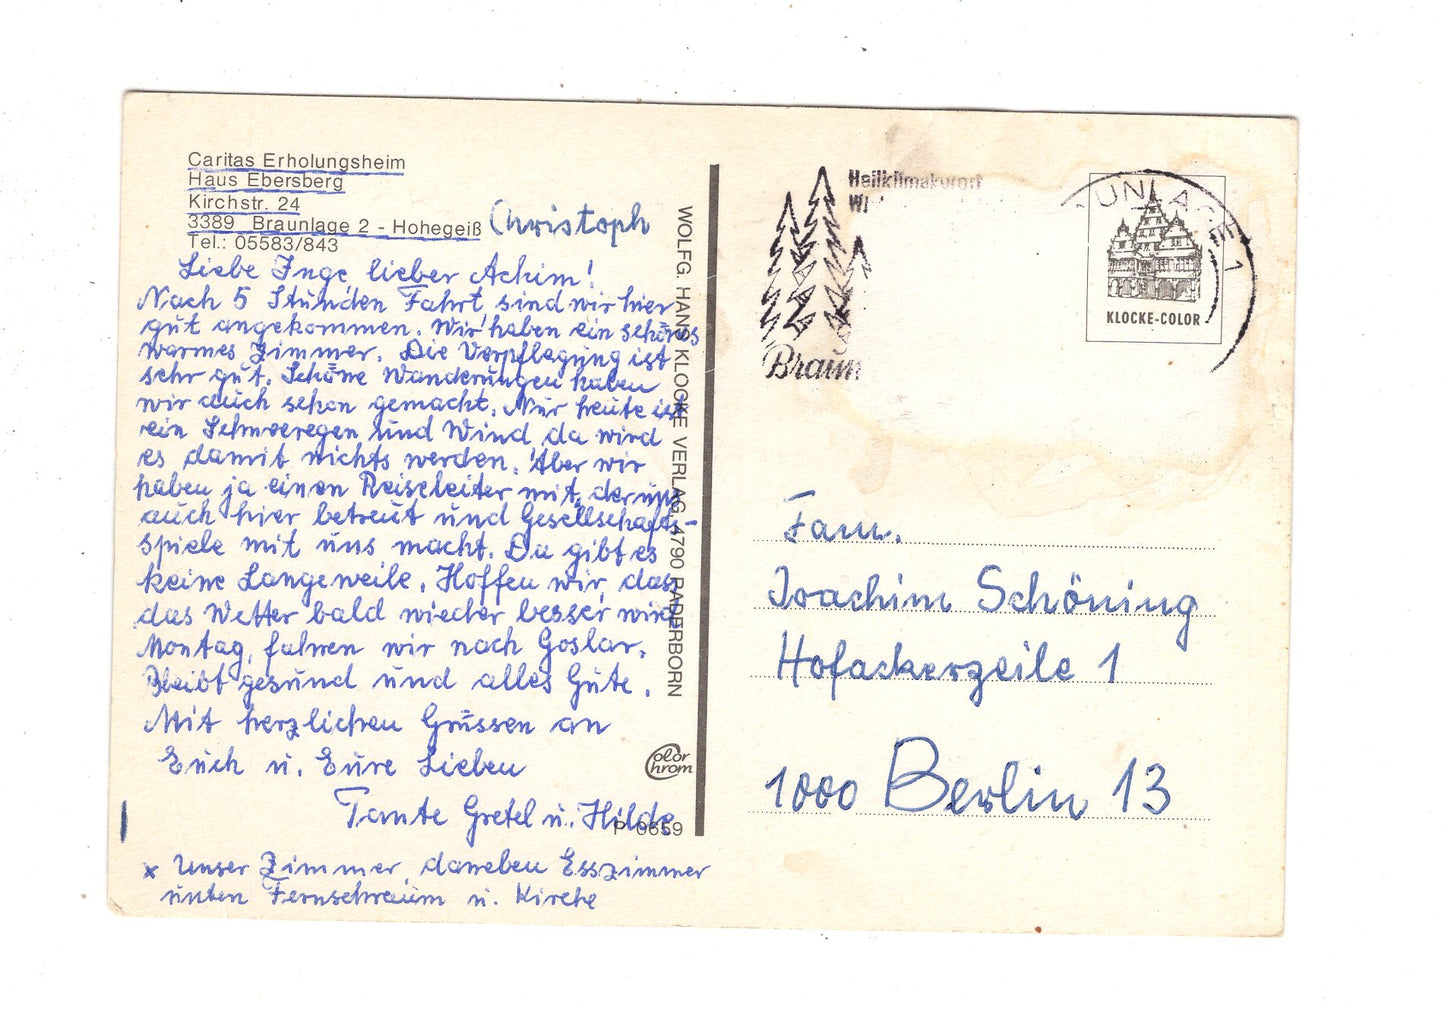 Caritas Erholungsheim
Haus Ebersberg
Kirchstr. 24
3389 Braunlage 2 - Hohegeiß
Tel.: 05583/843
Christoph
Liebe Inge, lieber Achim!
Nach 5 Stunden Fahrt, sind wir hier
gut angekommen. Wir haben ein schönes
warmes Zimmer. Die Verpflegung ist
sehr gut. Schöne Wanderungen haben
wir auch schon gemacht. Nur heute ist
ein Schneeregen und Wind, da wird
es damit nichts werden. Aber wir
haben ja einen Reiseleiter mit, der uns
auch hier betreut und Gesellschafts-
spiele mit uns macht. Da gibt es
keine Langeweile. Hoffen wir, dass
das Wetter bald wieder besser wird
Montag, fahren wir nach Goslar.
Bleibt gesund und alles Gute.
Mit herzlichen Grüssen an
Euch u. Eure Lieben
Tante Gretel u. Hilde
x Unser Zimmer, daneben Esszimmer
unten Fernsehraum u. Kirche
WOLFG. HANS KLOCKE VERLAG, 4790 PADERBORN
Color
Chrom
P 0659
Heilklimakurort
Braun
UNLAGE 1
KLOCKE-COLOR
Fam.
Joachim Schöning
Hofackerzeile 1
1000 Berlin 13